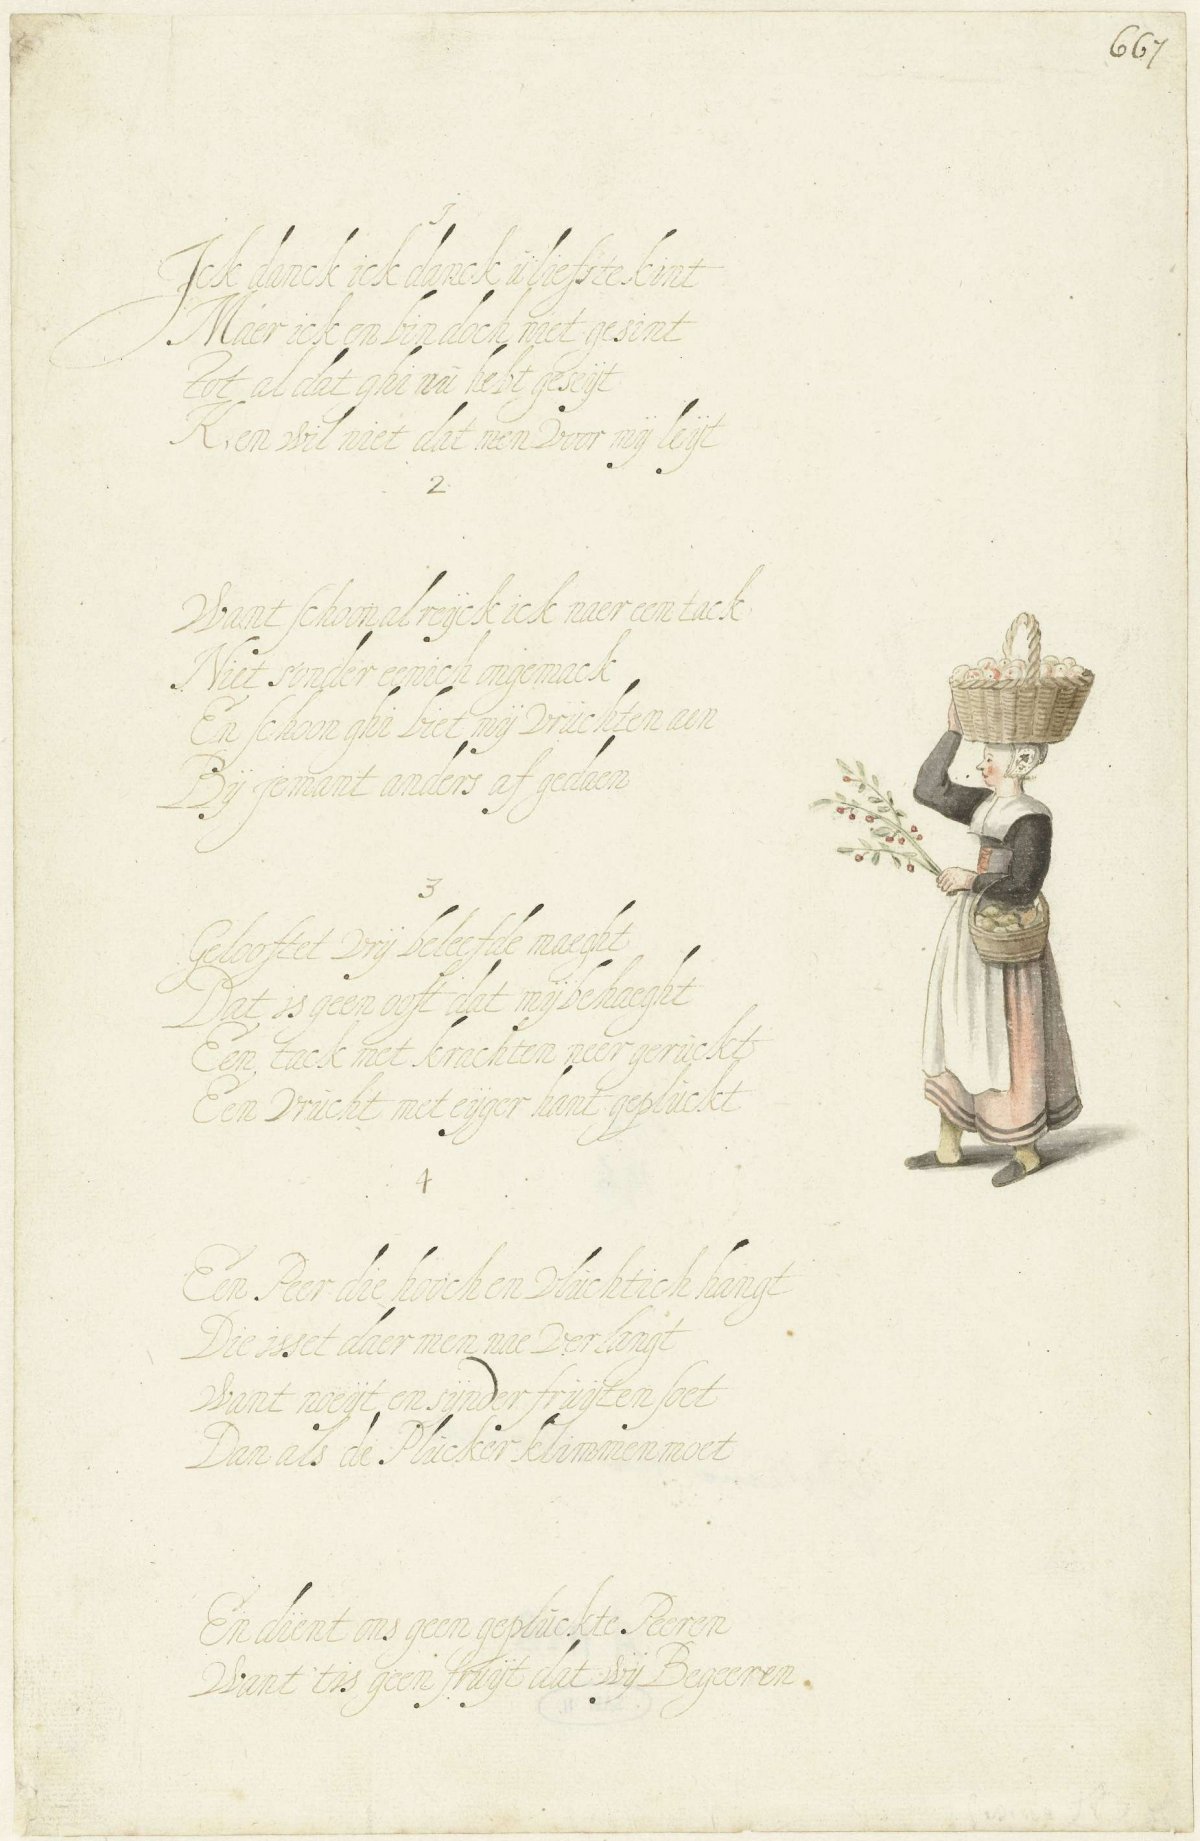 667
1
Ick danck ick danck u liefste kint
Maer ick en bin doch niet gesint
Tot al dat ghi nu hebt geseijt
K. en wil niet dat men voor mij leijt
2
Want schoon al reijck ick naer een tack
Niet sonder eenich ongemack
En schoon ghi biet mij vruchten aen
Bij jemant anders af gedaen
3
Gelooftet vrij beleefde maeght
Dat is geen ooft dat mij behaeght
Een tack met krachten neer geruckt
Een vrucht met eijger hant gepluckt
4
Een Peer die hooch en vluchtich hangt
Die isset daer men nae verlangt
Want noeijt en sijnder fruijten soet
Dan als de Plucker klimmen moet
En dient ons geen gepluckte Peeren
Want tis geen fruijt dat wij Begeeren.